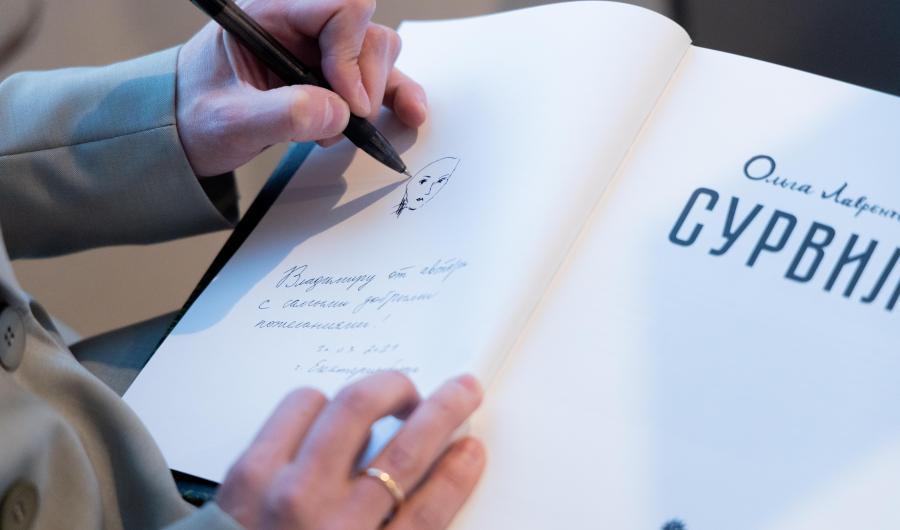 Владимиру от автора
с самыми добрыми
пожеланиями!
г. Екатеринбург
Ольга Лаврент
СУРВИЛ